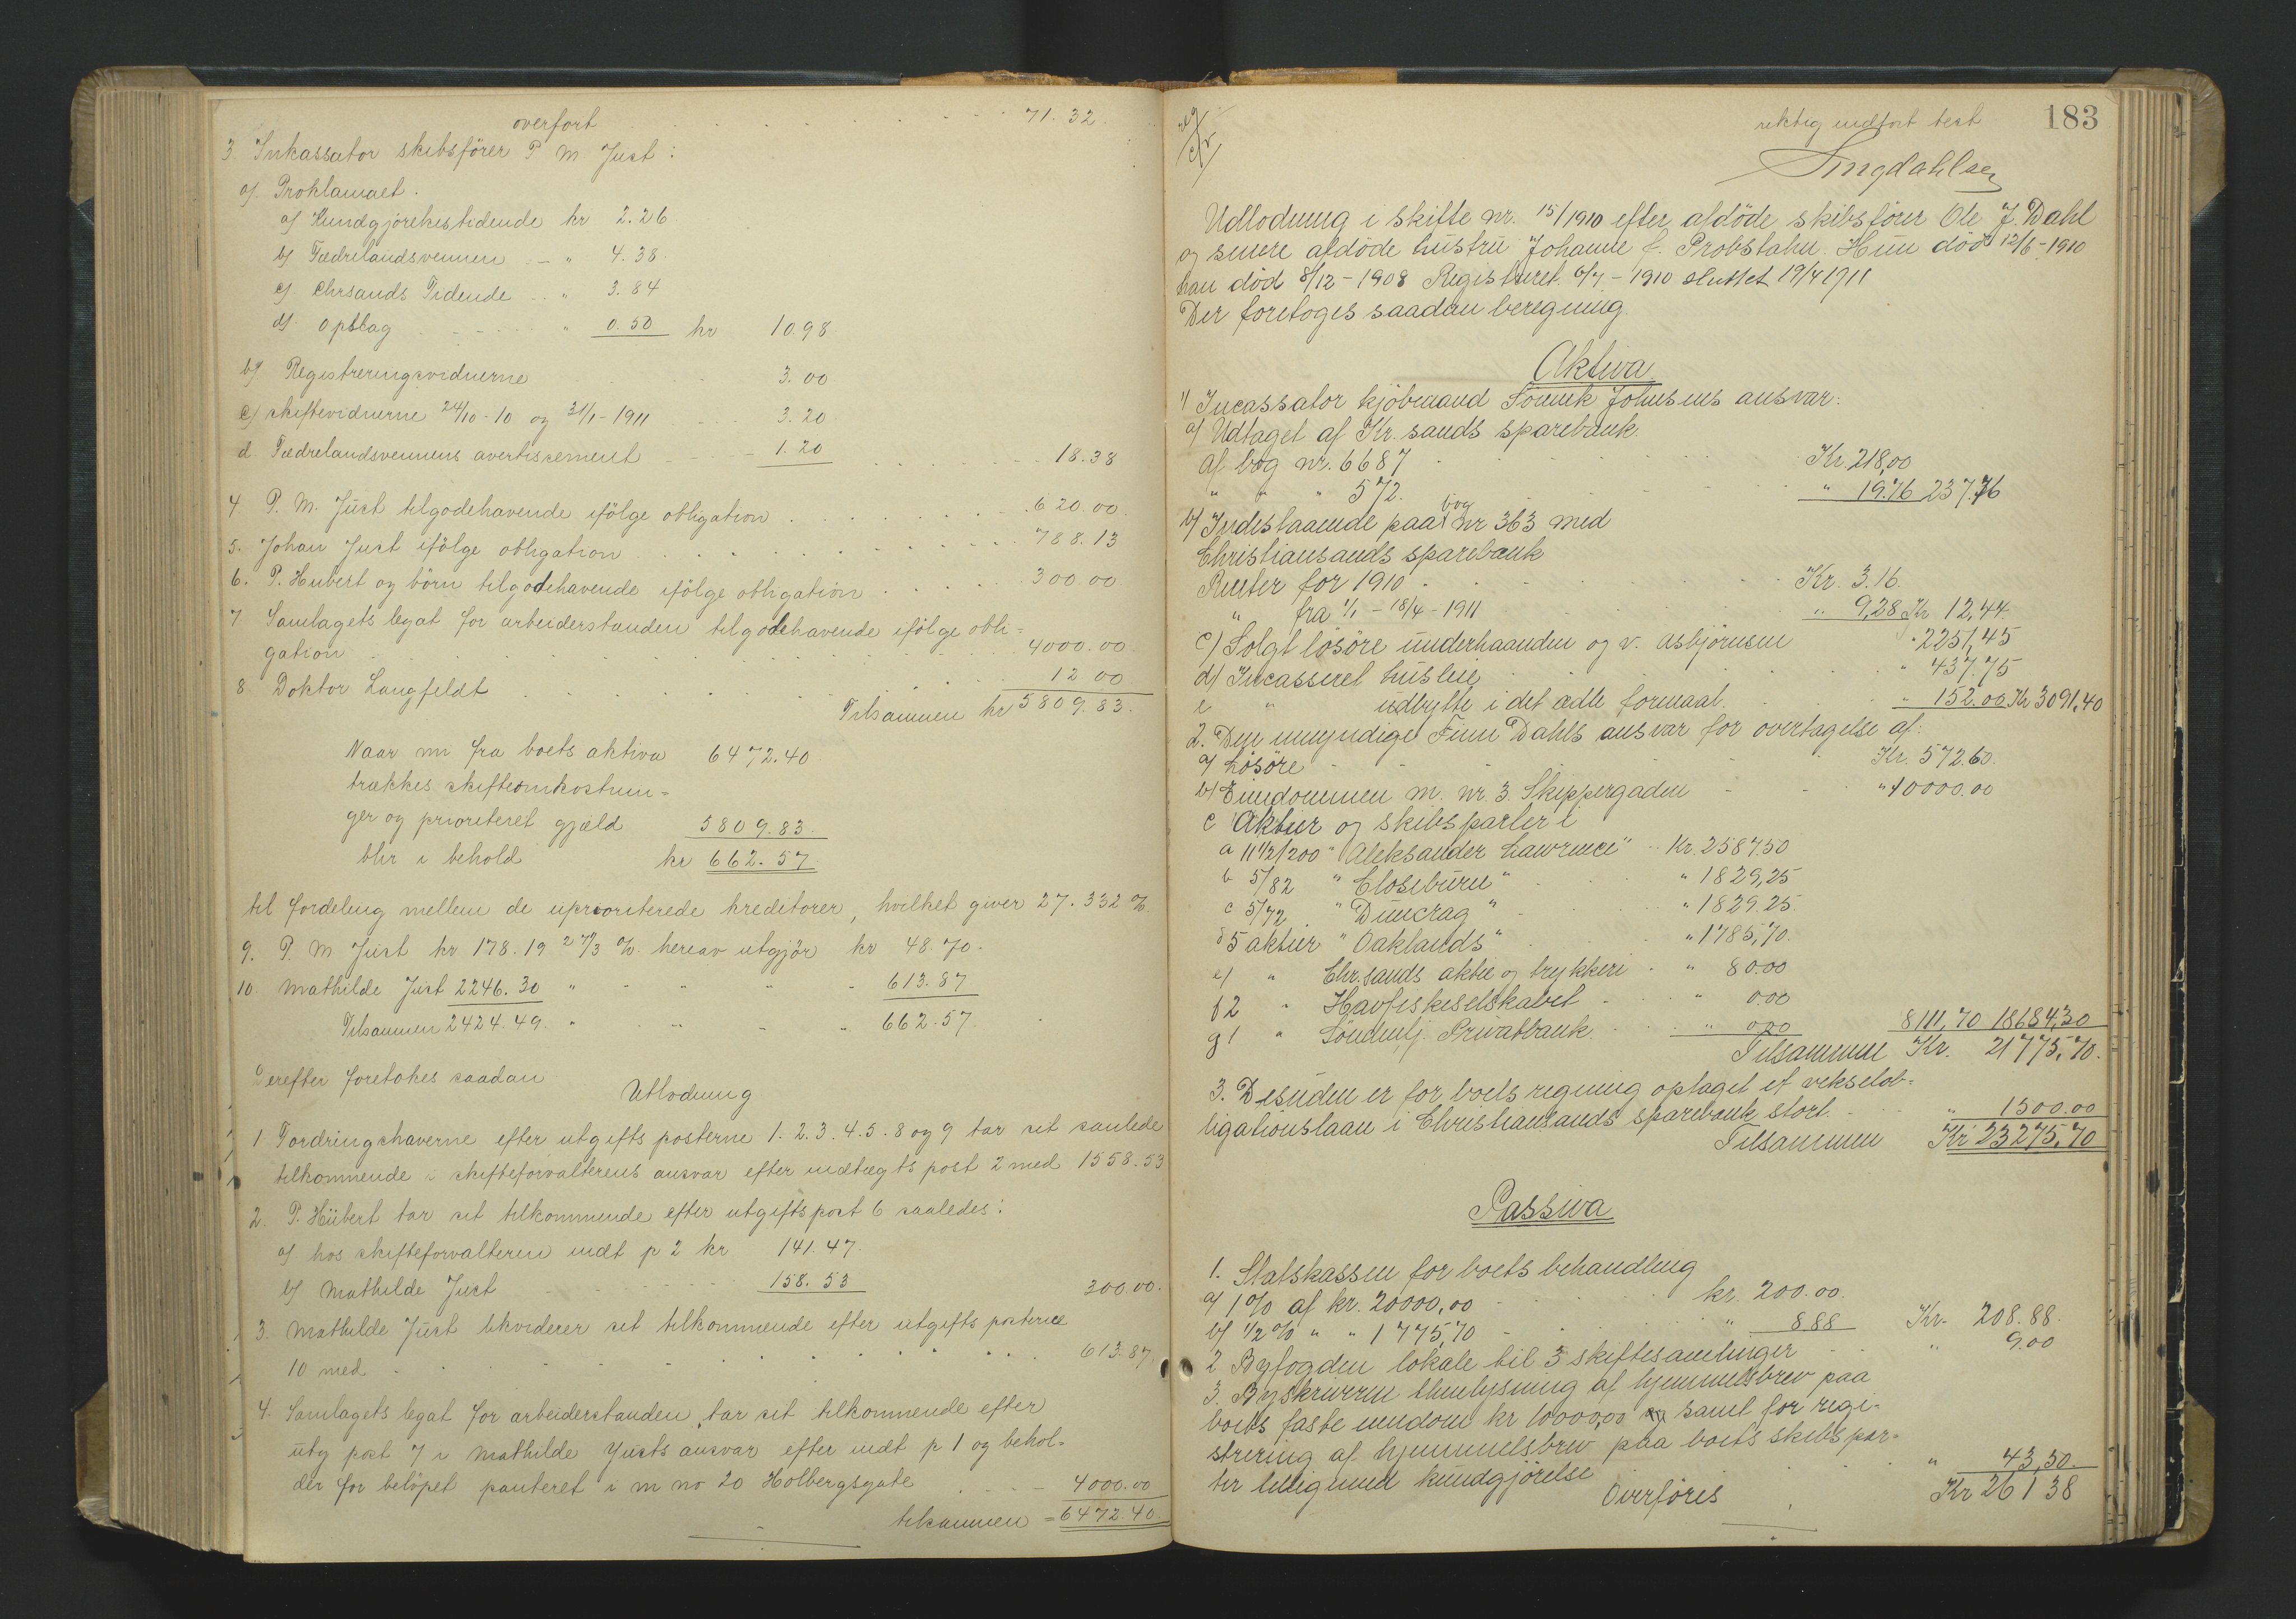 overført . . . . . . . 71.32.
3 Inkassator skibsfører P M Just:
a) Proklamaet.
a) Kundgjørelsestidende kr 2.26
b) Fædrelandsvennen - " 4.38
c) Chrsands Tidende .. " 3.84
d) Opslag - - - - " 0.50 kr 10.98
b) Registreringsvidnerne 3.00
c) skiftevidnerne 24/10-10 og 31/1-1911 - - - 3.20
d Fædrelandsvennens avertissement - - - 1.20 . . . . . 18.38
4. P. M. Just tilgodehavende ifølge obligation . . . . . . 620.00.
5. Johan Just ifølge obligation . . . . . . . . 788.13
6. P. Hubert og børn tilgodehavende ifølge obligation . . . 300.00.
7 Samlagets legat for arbeiderstanden tilgodehavende ifølge obli=
gation . . . . . . . . 4000.00.
8 Doktor Langfeldt . . . . . . . 12 00
Tilsammen kr 5809.83.
Naar nu fra boets aktiva 6472.40
trækkes skifteomkostnin=
ger og prioriteret gjæld 5809.83.
blir i behold kr 662.57
til fordeling mellem de uprioriterede kreditorer, hvilket giver 27.332 %.
9. P. M. Just kr 178.19 27 1/3 %. herav utgjør kr 48.70.
10. Mathilde Just 2246.30 " - " " - 613.87
Tilsammen 2424.49. " - " - " 662.57.
Derefter foretokes saadan
Utlodning
1 Fordringshaverne efter utgiftsposterne 1.2.3.4.5.8 og 9 tar sit saaledes
tilkommende i skifteforvalterens ansvar efter indtægts post 2 med 1558.53
2. P. Hübert tar sit tilkommende efter utgiftspost 6 saaledes:
a) hos skifteforvalteren indt p 2 kr 141.47.
b) Mathilde Just - - - - - 158.53 300.00.
3. Mathilde Just likviderer sit tilkommende efter utgifts posterne
10 med - . . . . . . . . 613.87.
4. Samlagets legat for arbeiderstanden tar sit tilkommende efter
utg post 7 i Mathilde Justs ansvar efter indt p 1 og behol=
der for beløpet panteret i m no 20 Holbergsgate . . . - 4000.00
tilsammen = 6472.40.
183
riktig indført test
Singdahlsen
Udlodning i skifte nr. 15/1910 efter afdøde skibsfører Ole J. Dahl
og senere afdøde hustru Johanne f. Probstahn. Hun død 12/6-1910
han død 8/12-1908 Registreret 6/7-1910 sluttet 19/4 1911
Der foretoges saadan beregning.
Aktiva
1) Incassator kjøbmand Sømnk Johnsens ansvar:
a) Udtaget af Kr.sands sparebank.
af bog nr. 6687 . . . . Kr. 218,00
" " " 572. . . . " 19.76 237.76
b) Indestaaende paa bog nr 363 med
Christiansands sparebank
Renter for 1910 . . . . Kr. 3.16.
" fra 1/1 - 18/4 - 1911 . . . " 9,28 Kr 12,44
c) Solgt løsøre underhaanden og v. Asbjørnsen " 2251,45
d) Incasseret husleie . . . . " 437.75
e " udbytte i det ædle formaal. . . " 152.00 Kr 3091,40
2. Den umyndige Finn Dahls ansvar for overtagelse af:
a) Løsøre - - - - Kr. 572.60.
b) Eiendommen m. nr. 3. Skippergaden - - " 10000.00
c Aktier og skibsparter i
a 11 1/2/200 "Aleksander Lawrence" .. Kr. 2587.50
b 5/82 "Closeburn" . . " 1829,25
c 5/72 "Duncrag" - . " 1829.25.
d 5 aktier "Oaklands" . . " 1785,70.
e) " Chr.sands aktie og trykkeri . " 80.00
f 2 " Havfiskeselskabet . . " 0.00
g 1 " Søndenfj. Privatbank. . . . " 0.00 8111,70 18684,30
Tilsammen Kr. 21775,70.
3. Desuden er for boets regning optaget et vekselob=
ligationslaan i Christiansands sparebank stort - . " 1500.00
Tilsammen Kr 23275,70
Passiva
1. Statskassen for boets behandling
a) 1 % af kr. 20000,00 - - kr. 200.00.
b) 1/2 % " " 1775,70 - " 8.88 Kr. 208.88.
2 Byfogden lokale til 3 skiftesamlinger - - " 9.00
3. Byskriveren thinglysning af hjemmelsbrev paa
boets faste eiendom kr 10000,00 samt for regi=
strering af hjemmelsbrev paa boets skibspar=
ter tilligemed kundgjørelse . . . " 43,50.
Overføres . Kr 261 38